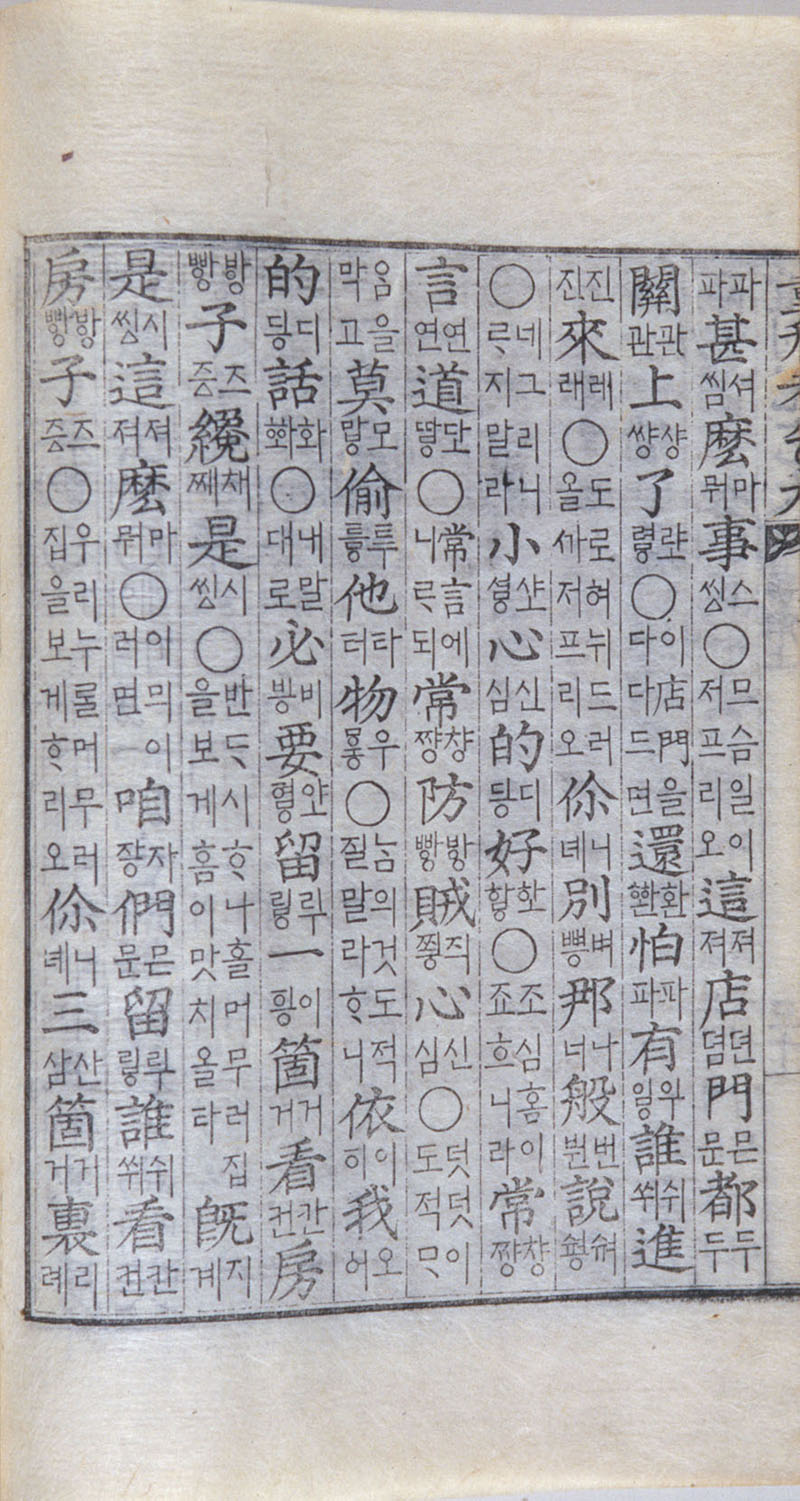 파파甚씸셔麽뭐마事씽스○므슴일이저프리오這져져店뎜뎐門문믄都두두
關관관上썅샹了렿랸○이店門을다다드면還환환怕파파有잉우誰쒸쉬進
진진來래레○도로혀뉘드러올ᄭᅡ저프리오你녜니別뼝벼那너나般붠번說쉉숴
○네그리니ᄅᆞ지말라小셩샾心심신的딩디好핳핲○조심홈이죠흐니라常쨩챵
言연연道땋닾○常言에니ᄅᆞ되常쨩챵防빵방賊쯩직心심신○덧덧이도적ᄆᆞ
옴을막고莫맣모偷틓투他터타物뭏우○ᄂᆞᆷ의것도적질말라ᄒᆞ니依히이我어오
的딩디話화화○내말대로必빙비要형얖留링루一힁이箇거거看컨칸房
빵방子증즈纔째채是씽시○반ᄃᆞ시ᄒᆞ나흘머무러집을보게홈이맛치올타旣계지
是씽시這져져麽뭐마○이믜이러면一咱쟝자們문믄留링루誰쒸쉬看컨칸
房빵방子증즈○우리누롤머무러집을보게ᄒᆞ리오你녜니三삼산箇거거裏례리